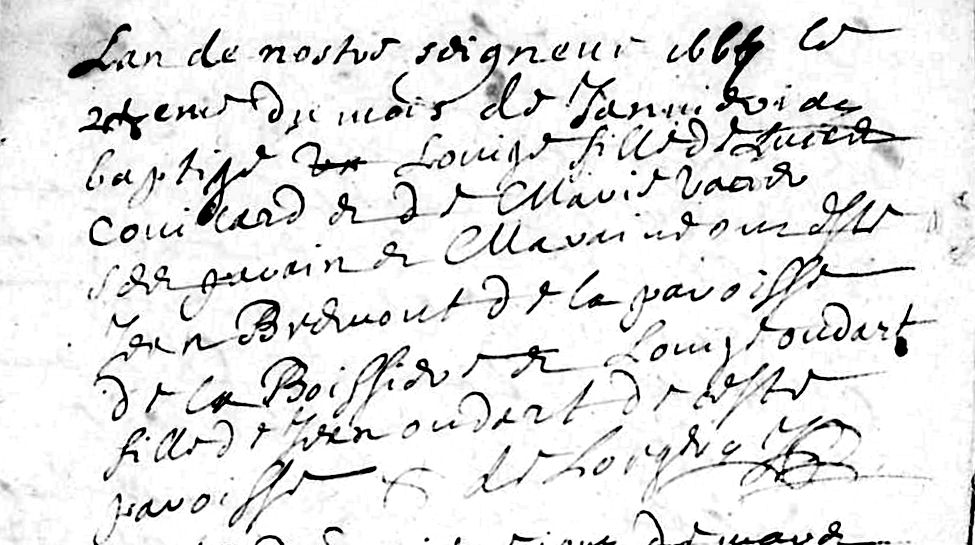 Lan de nostre seigneur 166 le
eme du mois de Januier iay
baptize Louize fille de Lucien
Couillard et de Marie
ses parain et Maraine ont este
Jean Bremont de la paroisse
de la Boissiere et Louize oudart
fille de Jean oudart de ceste
paroisse de